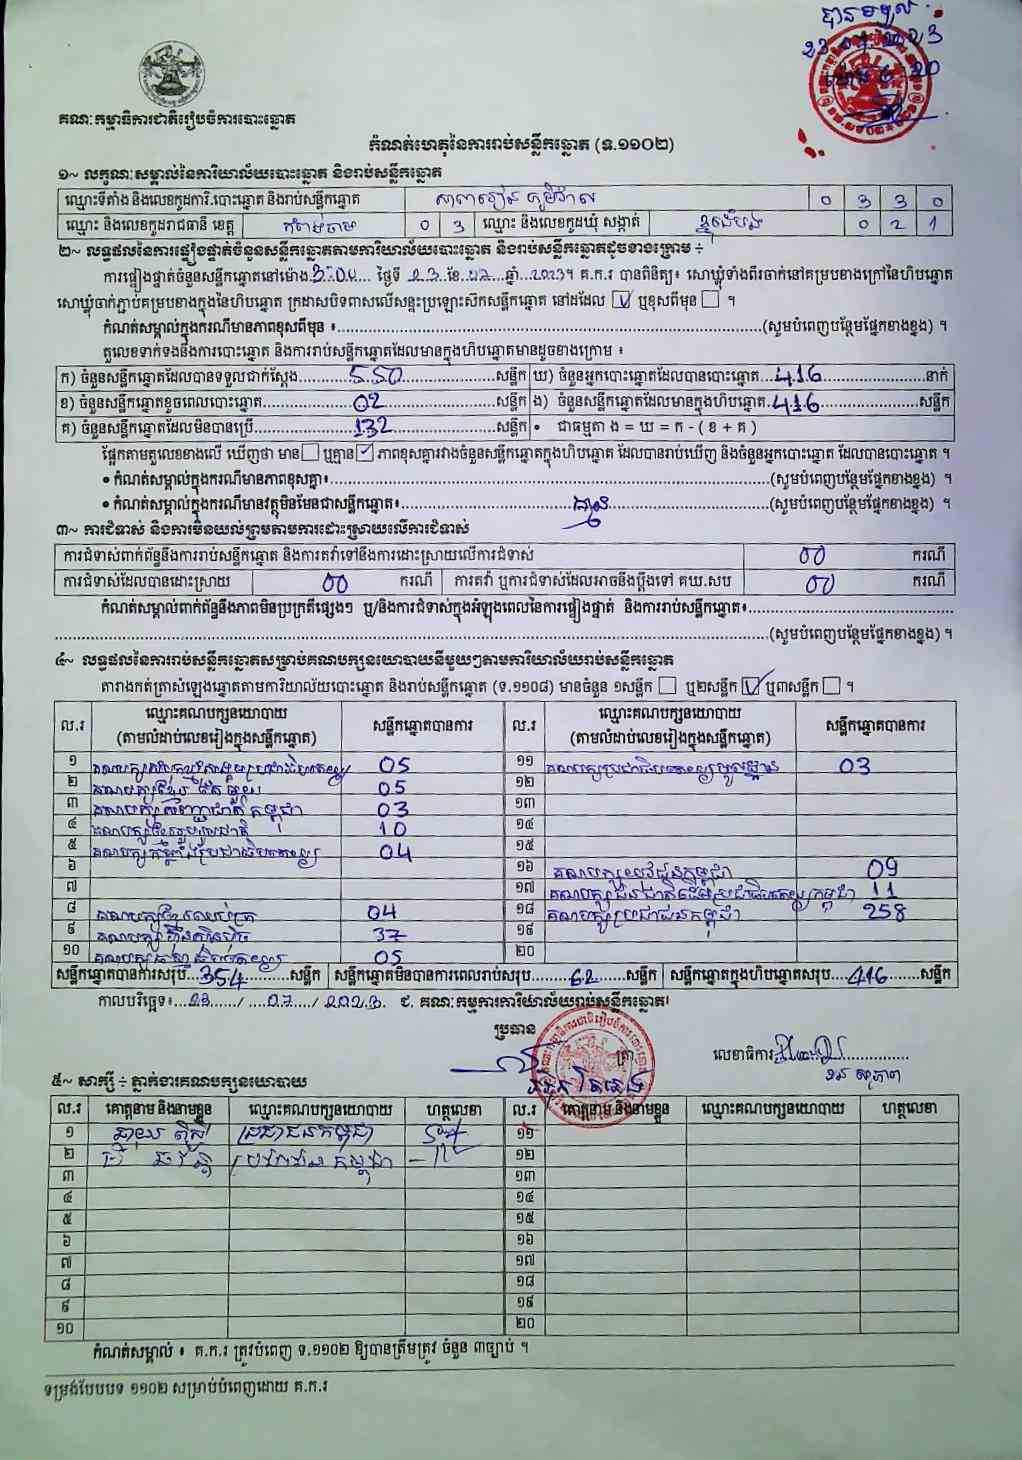 បានទទួល
គណៈកម្មាធិការជាតិរៀបចំការបោះឆ្នោត
កំណត់ហេតុនៃការរាប់សន្លឹកឆ្នោត (ទ.១១០២)
១~ លក្ខណៈសម្គាល់នៃការិយាល័យបោះឆ្នោត និងរាប់សន្លឹកឆ្នោត
ឈ្មោះទីតាំង និងលេខកូដការិ.បោះឆ្នោត និងរាប់សន្លឹកឆ្នោត 0 3 3 0
ឈ្មោះ និងលេខកូដរាជធានី ខេត្ត កំពង់ចាម 0 3 ឈ្មោះ និងលេខកូដឃុំ សង្កាត់ 0 2 1
២~ លទ្ធផលនៃការផ្ទៀងផ្ទាត់ចំនួនសន្លឹកឆ្នោតតាមការិយាល័យបោះឆ្នោត និងរាប់សន្លឹកឆ្នោតដូចខាងក្រោម ÷
ការផ្ទៀងផ្ទាត់ចំនួនសន្លឹកឆ្នោតនៅម៉ោង ថ្ងៃទី 23 ខែ 07 ឆ្នាំ 2023។ គ.ក.រ បានពិនិត្យ៖ សោឃ្លុំទាំងពីរចាក់នៅគម្របខាងក្រៅនៃហិបឆ្នោត
សោឃ្លុំចាក់ភ្ជាប់គម្របខាងក្នុងនៃហិបឆ្នោត ក្រដាសបិទពាសលើសន្ទះប្រឡោះសឹកសន្លឹកឆ្នោត នៅដដែល ☑ ឬខុសពីមុន ☐ ។
កំណត់សម្គាល់ក្នុងករណីមានភាពខុសពីមុន ៖..........(សូមបំពេញបន្ថែមផ្នែកខាងខ្នង) ។
តួលេខទាក់ទងនឹងការបោះឆ្នោត និងការរាប់សន្លឹកឆ្នោតដែលមានក្នុងហិបឆ្នោតមានដូចខាងក្រោម ៖
ក) ចំនួនសន្លឹកឆ្នោតដែលបានទទួលជាក់ស្តែង 550 សន្លឹក ឃ) ចំនួនអ្នកបោះឆ្នោតដែលបានបោះឆ្នោត 416 នាក់
ខ) ចំនួនសន្លឹកឆ្នោតខូចពេលបោះឆ្នោត 02 សន្លឹក ង) ចំនួនសន្លឹកឆ្នោតដែលមានក្នុងហិបឆ្នោត 416 សន្លឹក
គ) ចំនួនសន្លឹកឆ្នោតដែលមិនបានប្រើ 132 សន្លឹក • ជាធម្មតា ង = ឃ = ក - ( ខ + គ )
ផ្អែកតាមតួលេខខាងលើ ឃើញថា មាន ☐ ឬគ្មាន ☑ ភាពខុសគ្នារវាងចំនួនសន្លឹកឆ្នោតក្នុងហិបឆ្នោត ដែលបានរាប់ឃើញ និងចំនួនអ្នកបោះឆ្នោត ដែលបានបោះឆ្នោត ។
• កំណត់សម្គាល់ក្នុងករណីមានភាពខុសគ្នា៖..........(សូមបំពេញបន្ថែមផ្នែកខាងខ្នង) ។
• កំណត់សម្គាល់ក្នុងករណីមានវត្ថុមិនមែនជាសន្លឹកឆ្នោត៖ គ្មាន (សូមបំពេញបន្ថែមផ្នែកខាងខ្នង) ។
៣~ ការជំទាស់ និងការមិនយល់ព្រមតាមការដោះស្រាយលើការជំទាស់
ការជំទាស់ពាក់ព័ន្ធនឹងការរាប់សន្លឹកឆ្នោត និងការតវ៉ាទៅនឹងការដោះស្រាយលើការជំទាស់ 00 ករណី
ការជំទាស់ដែលបានដោះស្រាយ 00 ករណី ការតវ៉ា ឬការជំទាស់ដែលអាចនឹងប្តឹងទៅ គឃ.សប 00 ករណី
កំណត់សម្គាល់ពាក់ព័ន្ធនឹងភាពមិនប្រក្រតីផ្សេងៗ ឬ/និងការជំទាស់ក្នុងអំឡុងពេលនៃការផ្ទៀងផ្ទាត់ និងការរាប់សន្លឹកឆ្នោត៖..........
..........(សូមបំពេញបន្ថែមផ្នែកខាងខ្នង) ។
៤~ លទ្ធផលនៃការរាប់សន្លឹកឆ្នោតសម្រាប់គណបក្សនយោបាយនីមួយៗតាមការិយាល័យរាប់សន្លឹកឆ្នោត
តារាងកត់ត្រាសំឡេងឆ្នោតតាមការិយាល័យបោះឆ្នោត និងរាប់សន្លឹកឆ្នោត (ទ.១១០៨) មានចំនួន ១សន្លឹក ☐ ឬ២សន្លឹក ☑ ឬ៣សន្លឹក ☐ ។
ល.រ ឈ្មោះគណបក្សនយោបាយ (តាមលំដាប់លេខរៀងក្នុងសន្លឹកឆ្នោត) សន្លឹកឆ្នោតបានការ ល.រ ឈ្មោះគណបក្សនយោបាយ (តាមលំដាប់លេខរៀងក្នុងសន្លឹកឆ្នោត) សន្លឹកឆ្នោតបានការ
១ 05 ១១ 03
២ 05 ១២
៣ 03 ១៣
៤ គណបក្សខ្មែររួបរួមជាតិ 10 ១៤
៥ គណបក្សកម្លាំងប្រជាធិបតេយ្យ 04 ១៥
៦ ១៦ គណបក្សយុវជនកម្ពុជា 09
៧ ១៧ គណបក្សជនជាតិដើមប្រជាធិបតេយ្យកម្ពុជា 11
៨ 04 ១៨ គណបក្សប្រជាជនកម្ពុជា 258
៩ គណបក្សហ្វ៊ុនស៊ិនប៉ិច 37 ១៩
១០ 05 ២០
សន្លឹកឆ្នោតបានការសរុប 354 សន្លឹក សន្លឹកឆ្នោតមិនបានការពេលរាប់សរុប 62 សន្លឹក សន្លឹកឆ្នោតក្នុងហិបឆ្នោតសរុប 416 សន្លឹក
កាលបរិច្ឆេទ៖ 23 / 07 / 2023 ជ. គណៈកម្មការការិយាល័យរាប់សន្លឹកឆ្នោត
ប្រធាន
ត្រា
លេខាធិការ
៥~ សាក្សី ÷ ភ្នាក់ងារគណបក្សនយោបាយ
ល.រ គោត្តនាម និងនាមខ្លួន ឈ្មោះគណបក្សនយោបាយ ហត្ថលេខា ល.រ គោត្តនាម និងនាមខ្លួន ឈ្មោះគណបក្សនយោបាយ ហត្ថលេខា
១ ប្រជាជនកម្ពុជា ១១
២ ប្រជាជនកម្ពុជា ១២
៣ ១៣
៤ ១៤
៥ ១៥
៦ ១៦
៧ ១៧
៨ ១៨
៩ ១៩
១០ ២០
កំណត់សម្គាល់ ៖ គ.ក.រ ត្រូវបំពេញ ទ.១១០២ ឱ្យបានត្រឹមត្រូវ ចំនួន ៣ច្បាប់ ។
ទម្រង់បែបបទ ១១០២ សម្រាប់បំពេញដោយ គ.ក.រ